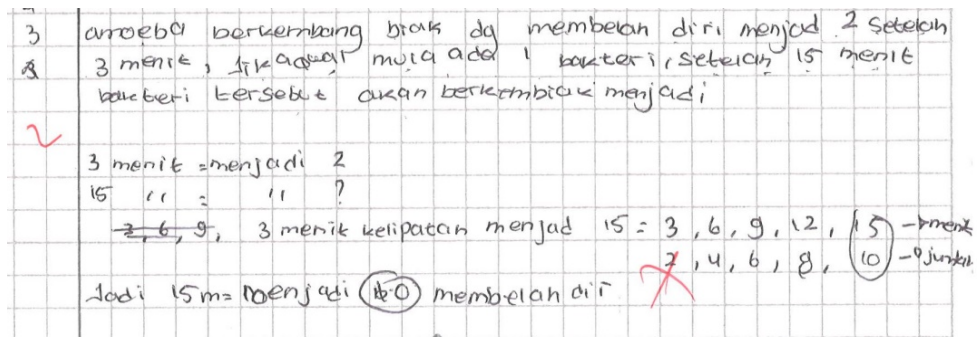 3 amoeba berkembang biak dg membelah diri menjadi 2 setelah
3 menit, jika awal mula ada 1 bakteri, setelah 15 menit
bakteri tersebut akan berkembiak menjadi
2
3 menit = menjadi 2
15 " = " ?
3, 6, 9, 3 menit kelipatan menjad 15 = 3, 6, 9, 12, 15 → menit
2, 4, 6, 8, 10 → jumlah
Jadi 15m = menjadi 10 membelah diri